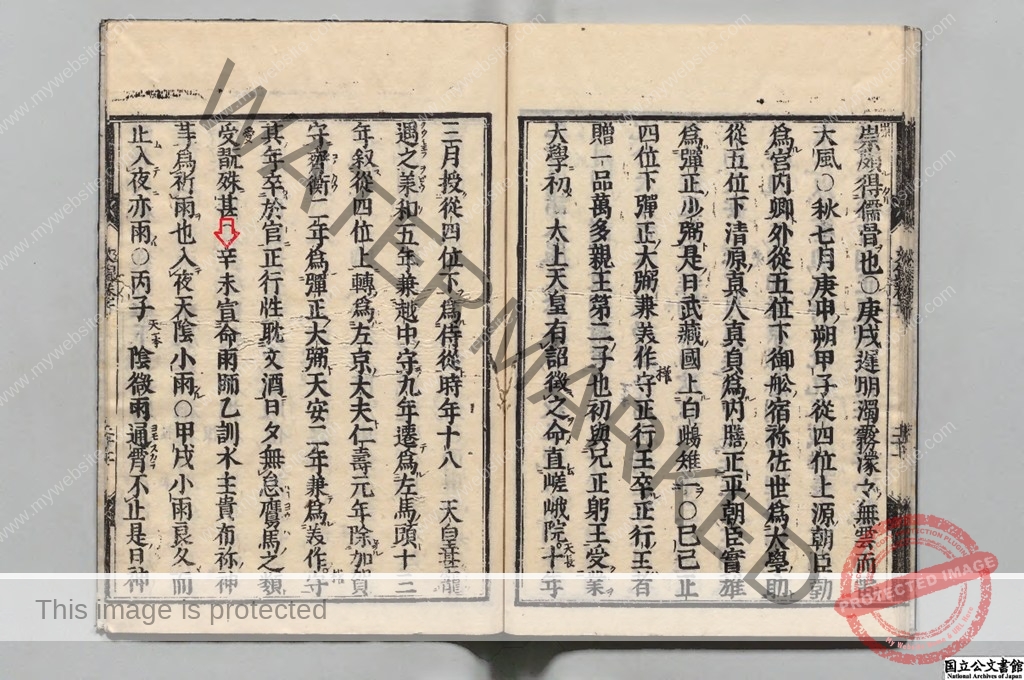 崇廟得儒骨也○庚戌遅明濁霧濛々無雲而雷
大風○秋七月庚申朔甲子從四位上源朝臣勤
爲宮内卿外從五位下御舩宿祢佐世爲大學助
從五位下清原真人真貞爲内膳正正平朝臣實雄
爲彈正少弼是日武藏國上白鴟雉一○己巳正
四位下彈正大弼兼美作權守正行王卒正行王者
贈一品萬多親王第二子也初與兄正躬王受業
大學初 太上天皇有詔徴之命直嵯峨院天長十年
三月授從四位下爲侍從時年十八 天皇甚寵
遇之兼和五年兼越中守九年遷爲左馬頭十三
年叙從四位上轉爲左京大夫仁壽元年除加賀
守齊衡二年爲彈正大弼天安二年兼爲美作權守
其年卒於官正行性耽文酒日夕無怠鷹馬之類
愛翫殊甚○辛未宣命雨師乙訓水主貴布祢神
等爲祈雨也入夜天陰小雨○甲戌小雨良久而
止入夜亦雨○丙子 天一本 陰微雨通霄不止是日神
WATERMARKED
This image is protected
PROTECTED IMAGE
www.mywebsite.com
国立公文書館
National Archives of Japan